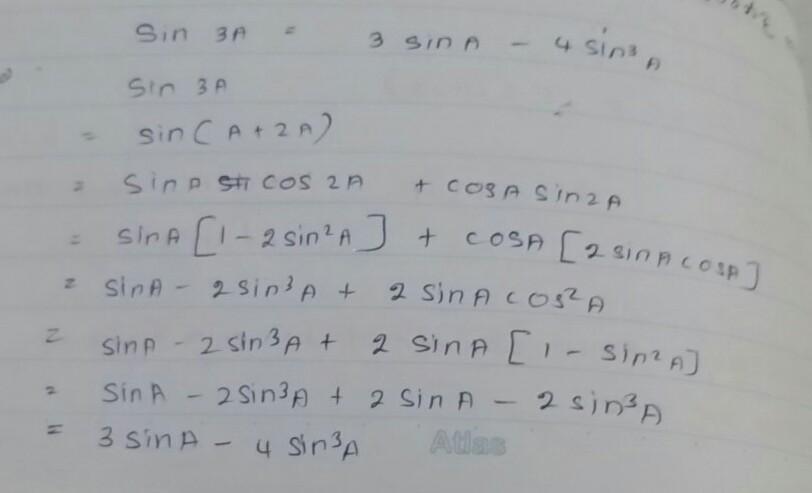 Sin 3A = 3 sinA - 4 sin³A
Sin 3A
= sin(A+2A)
= SinA cos 2A + cosA Sin2A
= sinA [1-2sin²A] + cosA [2 sinA cosA]
= sinA - 2sin³A + 2 sinA cos²A
= sinA - 2sin³A + 2 sinA [1 - sin²A]
= SinA - 2sin³A + 2 sinA - 2 sin³A
= 3 sinA - 4 sin³A
Atlas